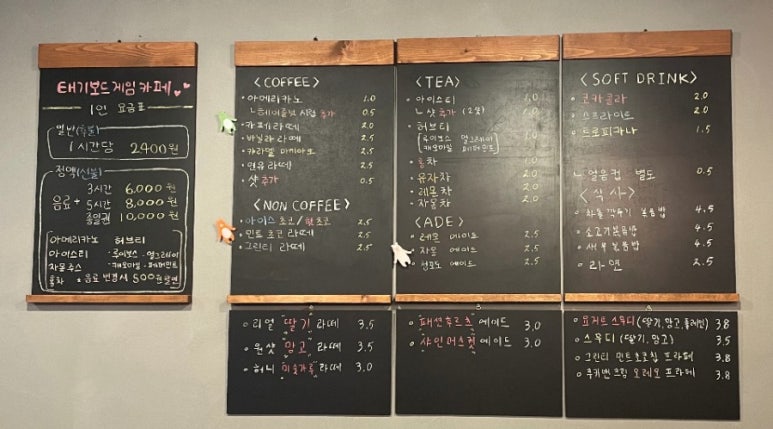 태기보드게임카페
1인 요금표
일반(후불)
1시간당 2400원
정액(선불)
음료 +
3시간 6,000원
5시간 8,000원
종일권 10,000원
아메리카노 허브티
아이스티 ·루이보스 ·얼그레이
자몽주스 ·캐모마일 ·페퍼민트
홍차 * 음료 변경시 500원 할면
<COFFEE>
·아메리카노 1.0
↳헤이즐넛 시럽 추가 0.5
·카페라떼 2.0
·바닐라 라떼 2.5
·카라멜 마끼아또 2.5
·연유 라떼 2.5
·샷 추가 0.5
<NON COFFEE>
·아이스 초코 / 핫초코 2.5
·민트 초코 라떼 2.5
·그린티 라떼 2.5
<TEA>
·아이스티 1.0
↳샷추가 (2샷) 1.0
·허브티 1.0
루이보스 얼그레이
캐모마일 페퍼민트
·홍차 1.0
·유자차 2.0
·레몬차 2.0
·자몽차 2.0
<ADE>
·레몬 에이드 2.5
·자몽 에이드 2.5
·청포도 에이드 2.5
<SOFT DRINK>
·코카콜라 2.0
·스프라이트 2.0
·트로피카나 1.5
↳얼음컵 별도 0.5
<식사>
깍두기 볶음밥 4.5
소고기볶음밥 4.5
새우볶음밥 4.5
라면 2.5
○리얼 딸기 라떼 3.5
○원샷 망고 라떼 3.5
○허니 미숫가루 라떼 3.0
○패션후르츠 에이드 3.0
○샤인머스켓 에이드 3.0
○요거트 스무디(딸기,망고,플레인) 3.8
○스무디 (딸기,망고) 3.5
○그린티 민트초코칩 프라페 3.8
○쿠키앤크림 오레오 프라페 3.8